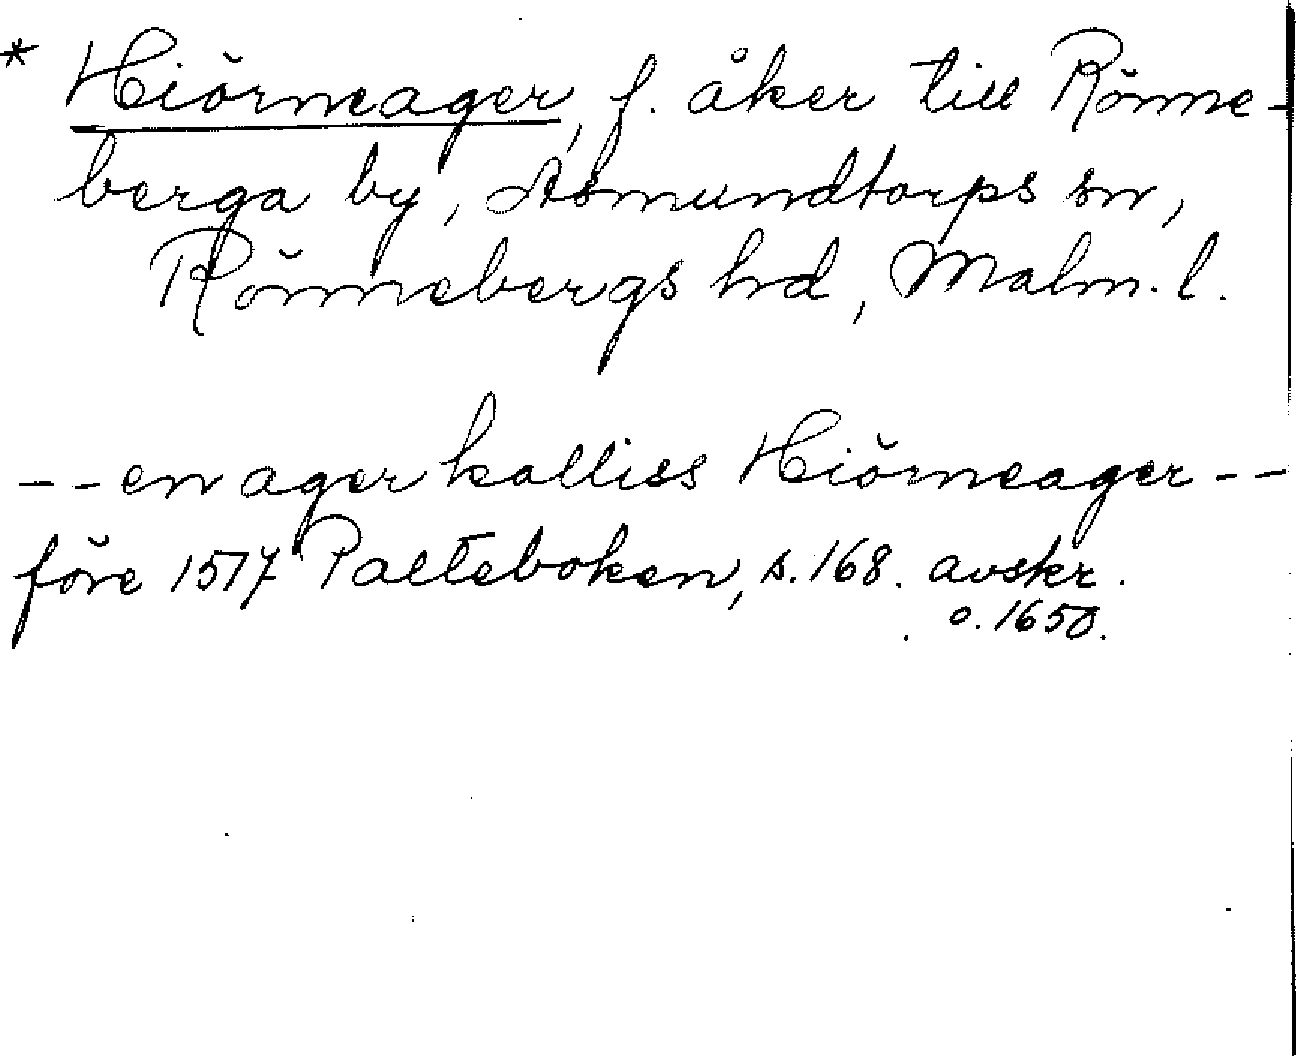 * Hiörneager, f. åker till Rönne-
berga by, Asmundtorps sn,
Rönnebergs hd, Malm. l.
-- en ager kalliss Hiörneager --
före 1517 Palteboken, s. 168. avskr.
o. 1650.